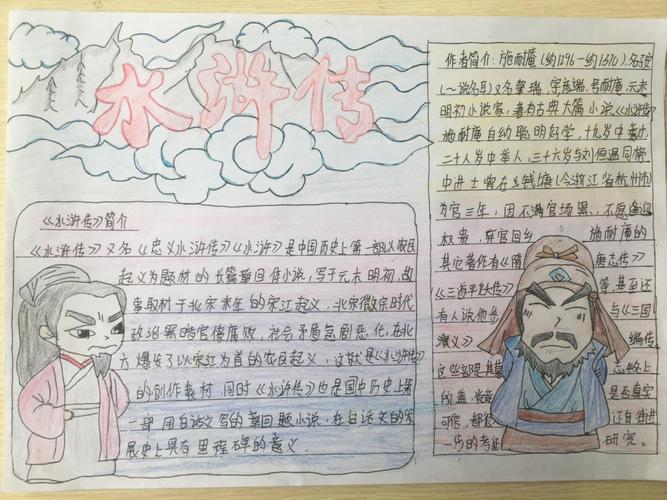 水浒传
《水浒传》简介
《水浒传》又名《忠义水浒传》《水浒》是中国历史上第一部以农民
起义为题材的长篇章回体小说,写于元末明初,故
事取材于北宋末年的宋江起义,北宋徽宗时代
政治黑暗官僚腐败,社会矛盾急剧恶化,在北
方爆发了以宋江为首的农民起义,这就是《水浒传》
的创作素材,同时《水浒传》也是国中历史上第
一部用白话文写的章回题小说,在白话文的发
展史上具有里程碑的意义.
作者简介:施耐庵(约1296一约1370)名子安
(一说名耳)又名肇瑞,字彦端,号耐庵,元末
明初小说家,著有古典大篇小说《水浒传》
施耐庵自幼聪明好学,十九岁中秀才,
二十八岁中举人,三十六岁与刘伯温同榜
中进士曾在钱塘(今浙江省杭州市)
为官三年,因不满官场黑,不愿逢迎
权贵,弃官回乡 施耐庵的
其它著作有《隋 唐志传》
《三遂平妖传》 等,甚至还
有人说他参 与《三国
演义》 编传
这些
的 是否真实
可信,都 证自街进
一步的考证 研究.